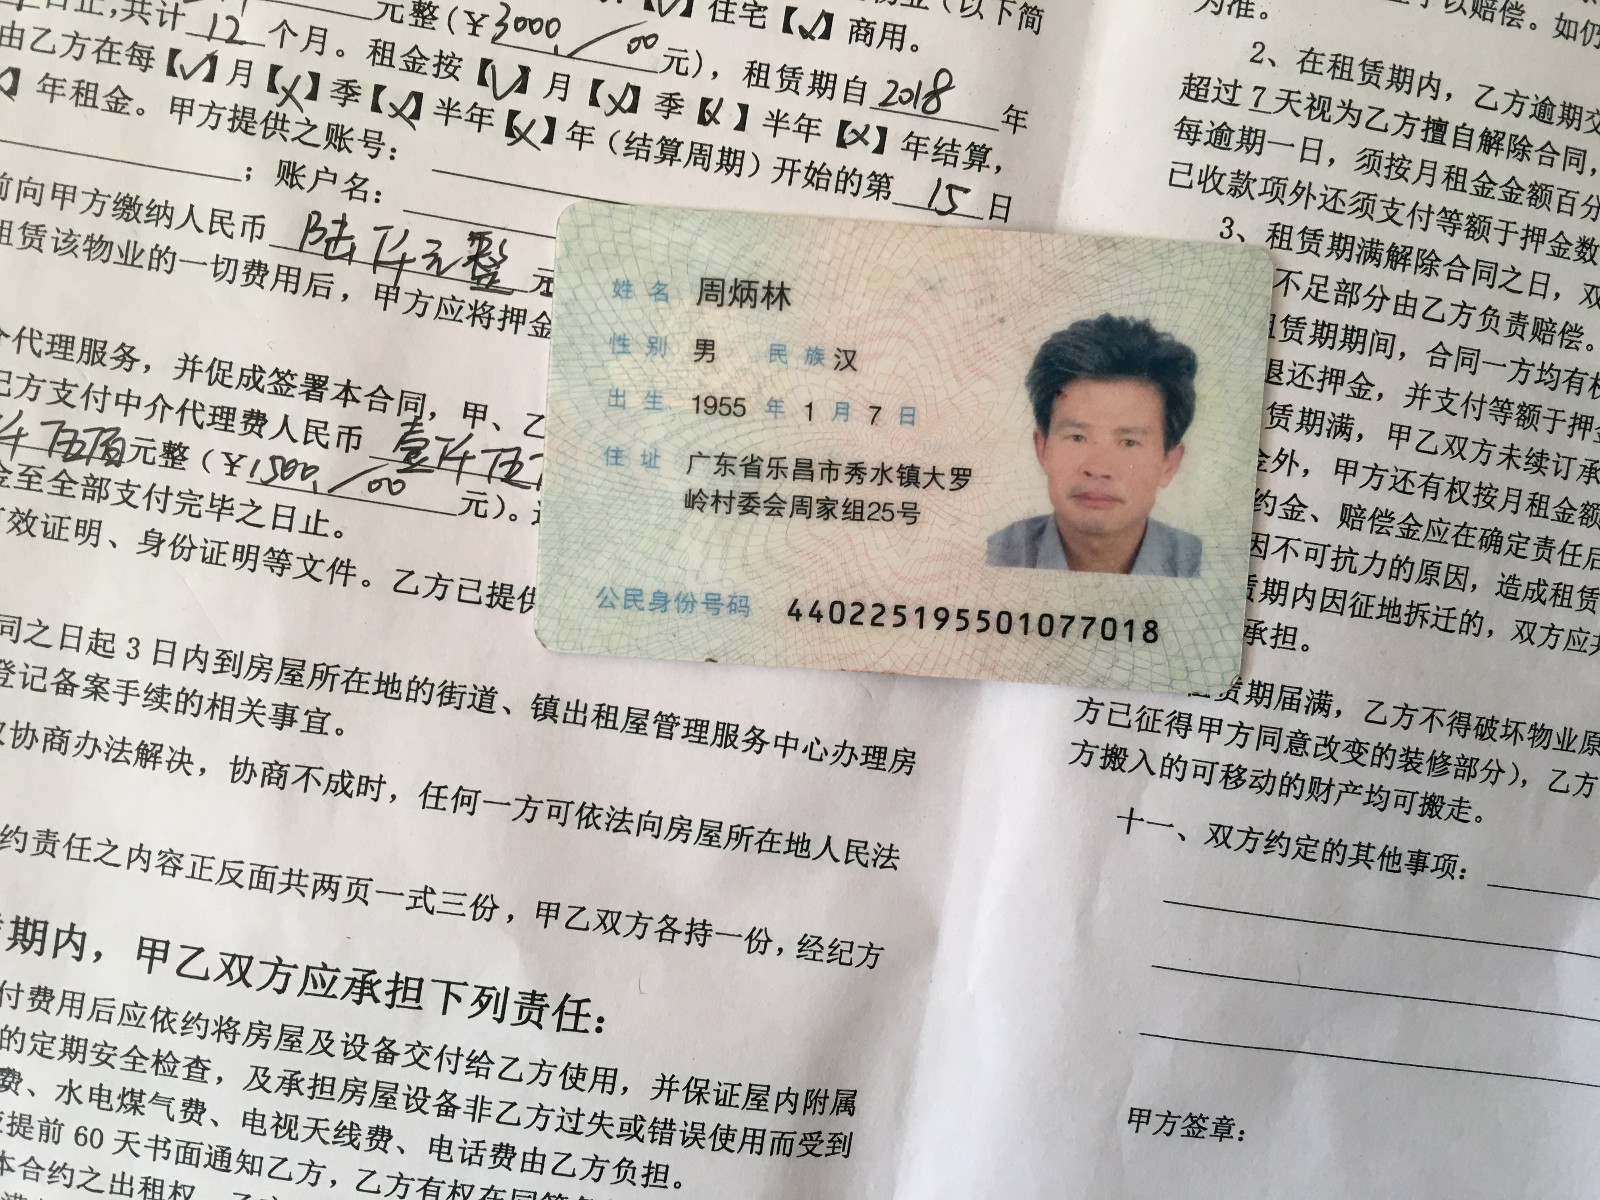 日止,共计 12 个月。租金按【√】月【×】季【×】半年【×】年结算,
元整(¥3000/00元),租赁期自2018年
【√】住宅【√】商用。
物业(以下简
由乙方在每【√】月【×】季【×】半年【×】年(结算周期)开始的第 15 日
年租金。甲方提供之账号:
;账户名:
前向甲方缴纳人民币 陆仟元整 元
租赁该物业的一切费用后,甲方应将押金
代理服务,并促成签署本合同,甲、乙
方支付中介代理费人民币 壹仟伍
仟伍佰元整(¥1500/00 元)。
金至全部支付完毕之日止。
有效证明、身份证明等文件。乙方已提供
同之日起 3 日内到房屋所在地的街道、镇出租屋管理服务中心办理房
登记备案手续的相关事宜。
协商办法解决,协商不成时,任何一方可依法向房屋所在地人民法
约责任之内容正反面共两页一式三份,甲乙双方各持一份,经纪方
期内,甲乙双方应承担下列责任:
付费用后应依约将房屋及设备交付给乙方使用,并保证屋内附属
的定期安全检查,及承担房屋设备非乙方过失或错误使用而受到
费、水电煤气费、电视天线费、电话费由乙方负担。
提前 60 天书面通知乙方,乙方有权在同等
本合约之出租权
姓名 周炳林
性别 男 民族 汉
出生 1955 年 1 月 7 日
住址 广东省乐昌市秀水镇大罗
岭村委会周家组25号
公民身份号码 440225195501077018
为准。
予以赔偿。如仍
2、在租赁期内,乙方逾期交
超过 7 天视为乙方擅自解除合同,
每逾期一日,须按月租金金额百分
已收款项外还须支付等额于押金数
3、租赁期满解除合同之日,双
不足部分由乙方负责赔偿。
租赁期期间,合同一方均有权
退还押金,并支付等额于押金
赁期满,甲乙双方未续订承
金外,甲方还有权按月租金额
约金、赔偿金应在确定责任后
因不可抗力的原因,造成租赁
赁期内因征地拆迁的,双方应共
承担。
赁期届满,乙方不得破坏物业原
方已征得甲方同意改变的装修部分),乙方
方搬入的可移动的财产均可搬走。
十一、双方约定的其他事项:
甲方签章: